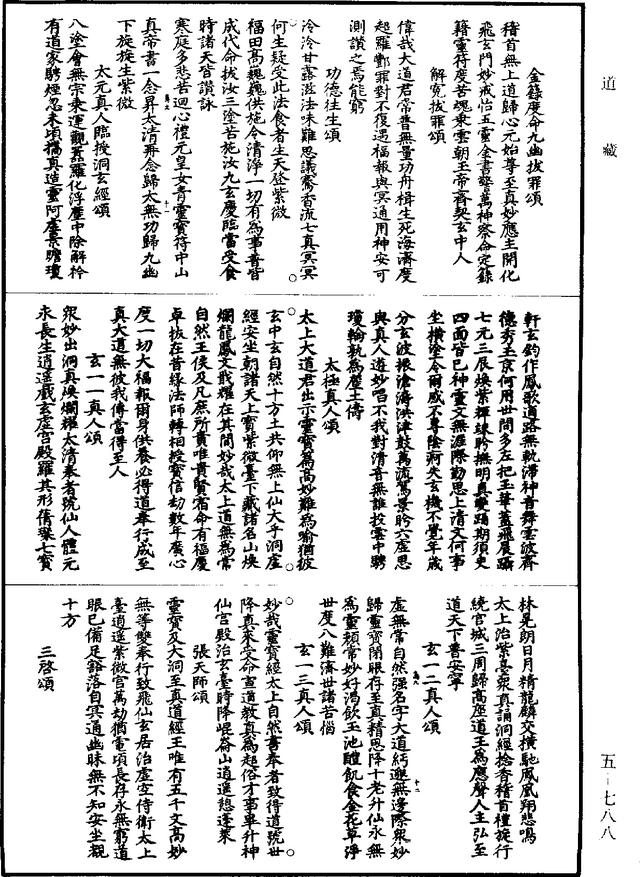 道藏
金籙度命九幽拔罪頌
稽首無上道歸心元始尊至真妙應主開化
飛玄門妙戒怡五靈金書警萬神察命定錄
籍靈符度苦魂乘雲朝玉帝齊契玄中人
解冤拔罪頌
偉哉大道君常普無量功舟楫生死海濟度
超羅酆罪對不復遇福報與冥通用神安可
測讚之焉能窮
功德往生頌
泠泠甘露滋法味難思議騫香流七真冥冥
何生疑受此法食者生天登紫微
福田高巍巍供施令清淨一切有為事普皆
成代命拔汝三塗苦施汝九玄慶臨當受食
時諸天皆讚詠
寒庭多悲苦迴心禮元皇女青靈寶符中山
真帝書一念昇太清再念歸太無功歸九幽
下旋旋生紫微
太元真人臨授洞玄經頌
八塗會無宗乘運觀囂羅化浮塵中除解衿
有道家騁煙忽未頃攜真造靈阿虛景瞻瓊
軒玄鈞作鳳歌道路無軌滯神音舞雲波齊
德秀玉京何用世間多左把玉華蓋飛晨躡
七元三辰煥紫輝竦眄撫明真變踊期須臾
四面皆已神靈文無涯際勤思上清文何事
坐橫塗令爾感不專陰痾失玄機不覺年歲
分玄波振滄濤洪津鼓萬流駕景眄六虛思
與真人遊妙唱不我對清音無誰投雲中騁
瓊輪孰為塵土儔
太極真人頌
太上大道君出示靈寶篇高妙難為喻猶彼
玄中玄自然十方土共仰無上仙大乎洞虛
經安坐朝諸天上寶紫微臺下藏諸名山煥
爛龍鳳文戢耀在其間妙哉太上道無為常
自然王侯及凡庶所貴唯貴賢宿命有福慶
卓拔在昔緣法師轉相授寶信劫數年廣心
度一切大福報爾身供養必得道奉行咸至
真大道無彼我傳當得至人
玄一一真人頌
眾妙出洞真煥爛耀太清奉者號仙人體元
永長生逍遙戲玄虛宮殿羅其形蒨璨七寶
林晃朗日月精龍麟交橫馳鳳凰翔悲鳴
太上治紫臺眾真誦洞經捻香稽首禮旋行
繞宮城三周歸高座道王為應聲人主弘至
道天下普安寧
玄一二真人頌
虛無常自然强名字大道紆遨無邊際眾妙
歸靈寶閉眼存至真精思降十老升仙永無
為靈顏常妙好渴飲玉池醴飢食金花草淨
世度八難濟世諸苦惱
玄一三真人頌
妙哉靈寶經太上自然書奉者致得道號世
降真來受命宣道教真為超俗才事畢升神
仙宮殿治玄臺時降崐崙山逍遙憩蓬萊
張天師頌
靈寶及大洞至真道經王唯有五千文高妙
無等雙奉行致飛仙玄居治虛空侍衛太上
臺逍遙紫微宮萬劫猶電頃長存永無窮道
眼已備足豁落自冥通幽昧無不知安坐觀
十方
三啓頌
五一七八八